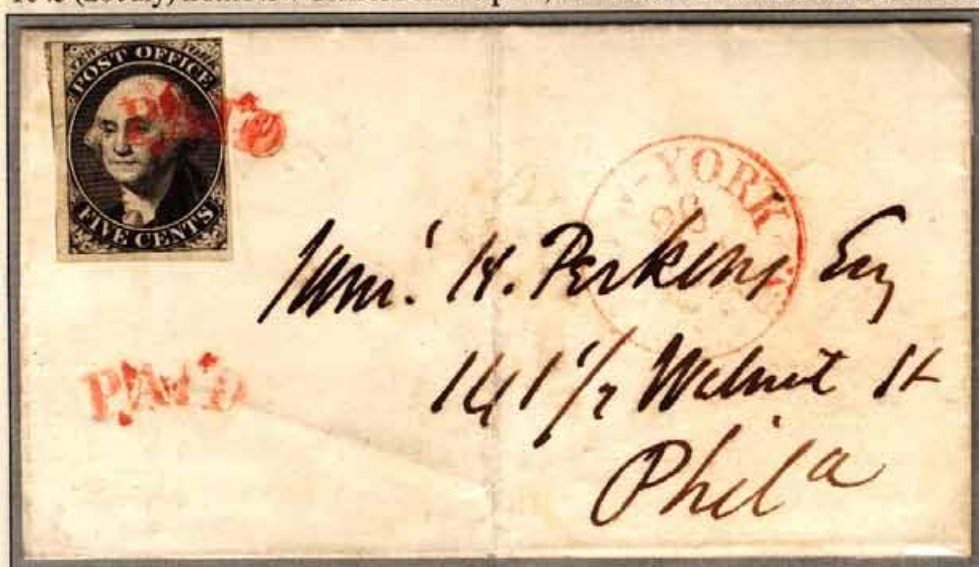 POST OFFICE
FIVE CENTS
PAID
W-YORK
20
Saml. H. Perkins Esq
141 1/2 Walnut St
Phila
PAID